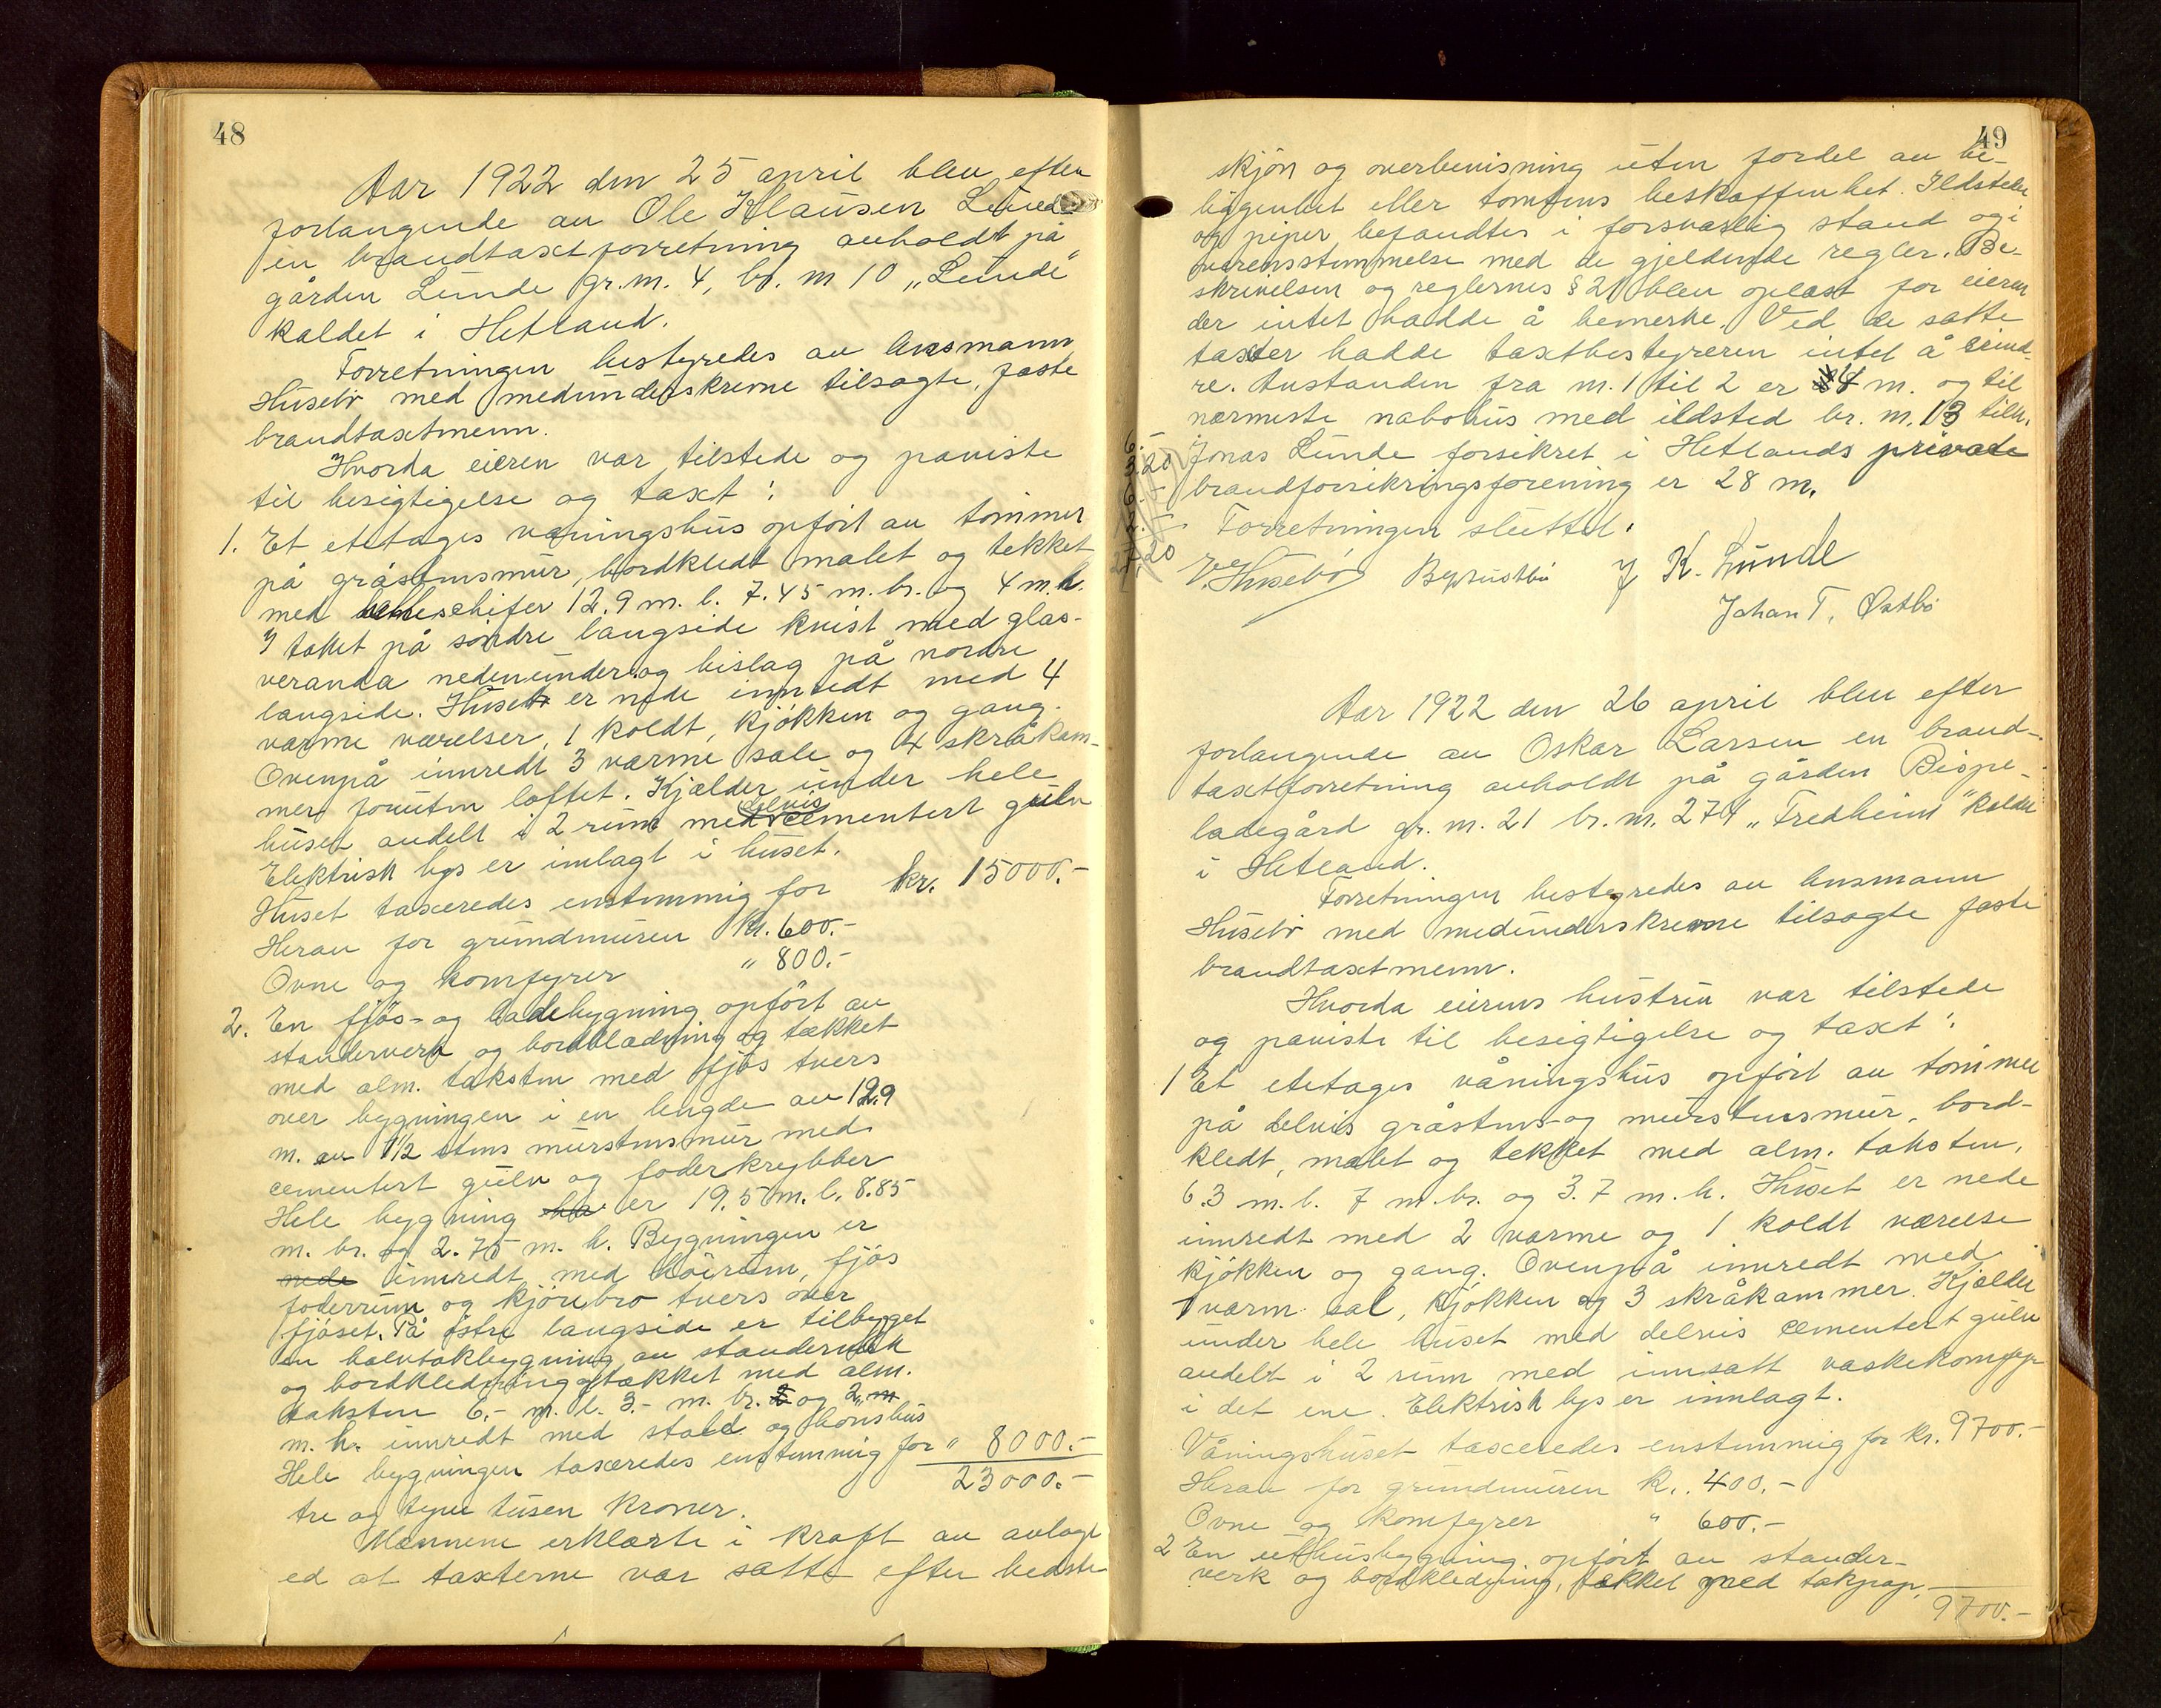 48
Aar 1922 den 25 april blev efter
forlangende av Ole Klausen Lunde
en brandtaxtforretning avholdt på
gården Lunde gr.n. 4, br. n 10 „Lunde"
kaldet i Hetland.
Forretningen bestyredes av lensmann
Husebø med medunderskrevne tilsagte, faste
brandtaxtmenn.
Hvorda eieren var tilstede og paviste
til besigtigelse og taxt:
1. Et etetages våningshus opført av tømmer
på gråstensmur, bordkledt malet og tekket
med skifer 12.9 m. l. 7.45 m. br. og 4 m. h.
I taket på søndre langside kvist med glas-
veranda nedenunder og bislag på nordre
langside. Huset er nede innredt med 4
varme værelser, 1 koldt, kjøkken og gang.
Ovenpå innredt 3 varme sale og 4 skråkam-
mer foruten loftet. Kjælder under hele
huset avdelt i 2 rum med delvis cementert gulv
Elektrisk lys er innlagt i huset.
Huset taxeredes enstemmig for kr. 15000.-
Herav for grundmuren Kr. 600.-
Ovne og komfyrer " 800.-
2. En fjøs- og ladebygning opført av
standerverk og bordklædning og tækket
med alm. taksten med fjøs tvers
over bygningen i en lengde av 12.9
m. av 1½ stens murstensmur med
cementert gulv og foderkrybber
Hele bygning er 19.5 m. l. 8.85
m. br. og 2.75 m. h. Bygningen er
nede innredt med høirum, fjøs
foderrum og kjørebro tvers over
fjøset. På østre langside er tilbygget
en halvtakbygning av standerverk
og bordkledning og tækket med alm.
taksten 6.- m. l. 3.- m. br. og 2
m. h. innredt med stald og hønshus
Hele bygningen taxeredes enstemmig for " 8000.-
23000.-
tre og tyve tusen kroner.
Mennene erklærte i kraft av avlagt
ed at taxterne var satte efter bedste
49
skjøn og overbevisning uten fordel av be-
liggenhet eller tomtens beskaffenhet. Ildsteder
og piper befandtes i forsvarlig stand og i
overensstemmelse med de gjeldende regler. Be-
skrivelsen og reglernes § 21 blev oplæst for eieren
der intet hadde å bemerke. Ved de satte
taxter hadde taxtbestyreren intet å erind-
re. Avstanden fra n. 1 til 2 er m. og til
nærmeste nabohus med ildsted br. n. 13 tilh.
Jonas Lunde forsikret i Hetlands private
brandforsikringsforening er 28 m.
Forretningen sluttet.
V. Husebø J K. Lunde
Johan T. Østbø
Aar 1922 den 26 april blev efter
forlangende av Oskar Larsen en brand-
taxtforretning avholdt på gården Bispe-
ladegård gr. n. 21 br. n. 274 „Fredheim" kaldet
i Hetland.
Forretningen bestyredes av lensmann
Husebø med medunderskrevne tilsagte faste
brandtaxtmenn.
Hvorda eierens hustru var tilstede
og paviste til besigtigelse og taxt:
1 Et etetages våningshus opført av tømmer
på delvis gråstens- og murstensmur, bord-
kledt, malet og tekket med alm. taksten,
6.3 m. l. 7 m. br. og 3.7 m. h. Huset er nede
innredt med 2 varme og 1 koldt værelse
kjøkken og gang. Ovenpå innredt med
1 varm sal, kjøkken og 3 skråkammer. Kjælder
under hele huset med delvis cementert gulv
avdelt i 2 rum med innsatt vaskekomfyr
i det ene. Elektrisk lys er innlagt.
Våningshuset taxeredes enstemmig for kr. 9700.-
Herav for grundmuren K. 400.-
Ovne og komfyrer " 600.-
2 En uthusbygning opført av stander-
verk og bordkledning, tækket med takpap,
9700.-